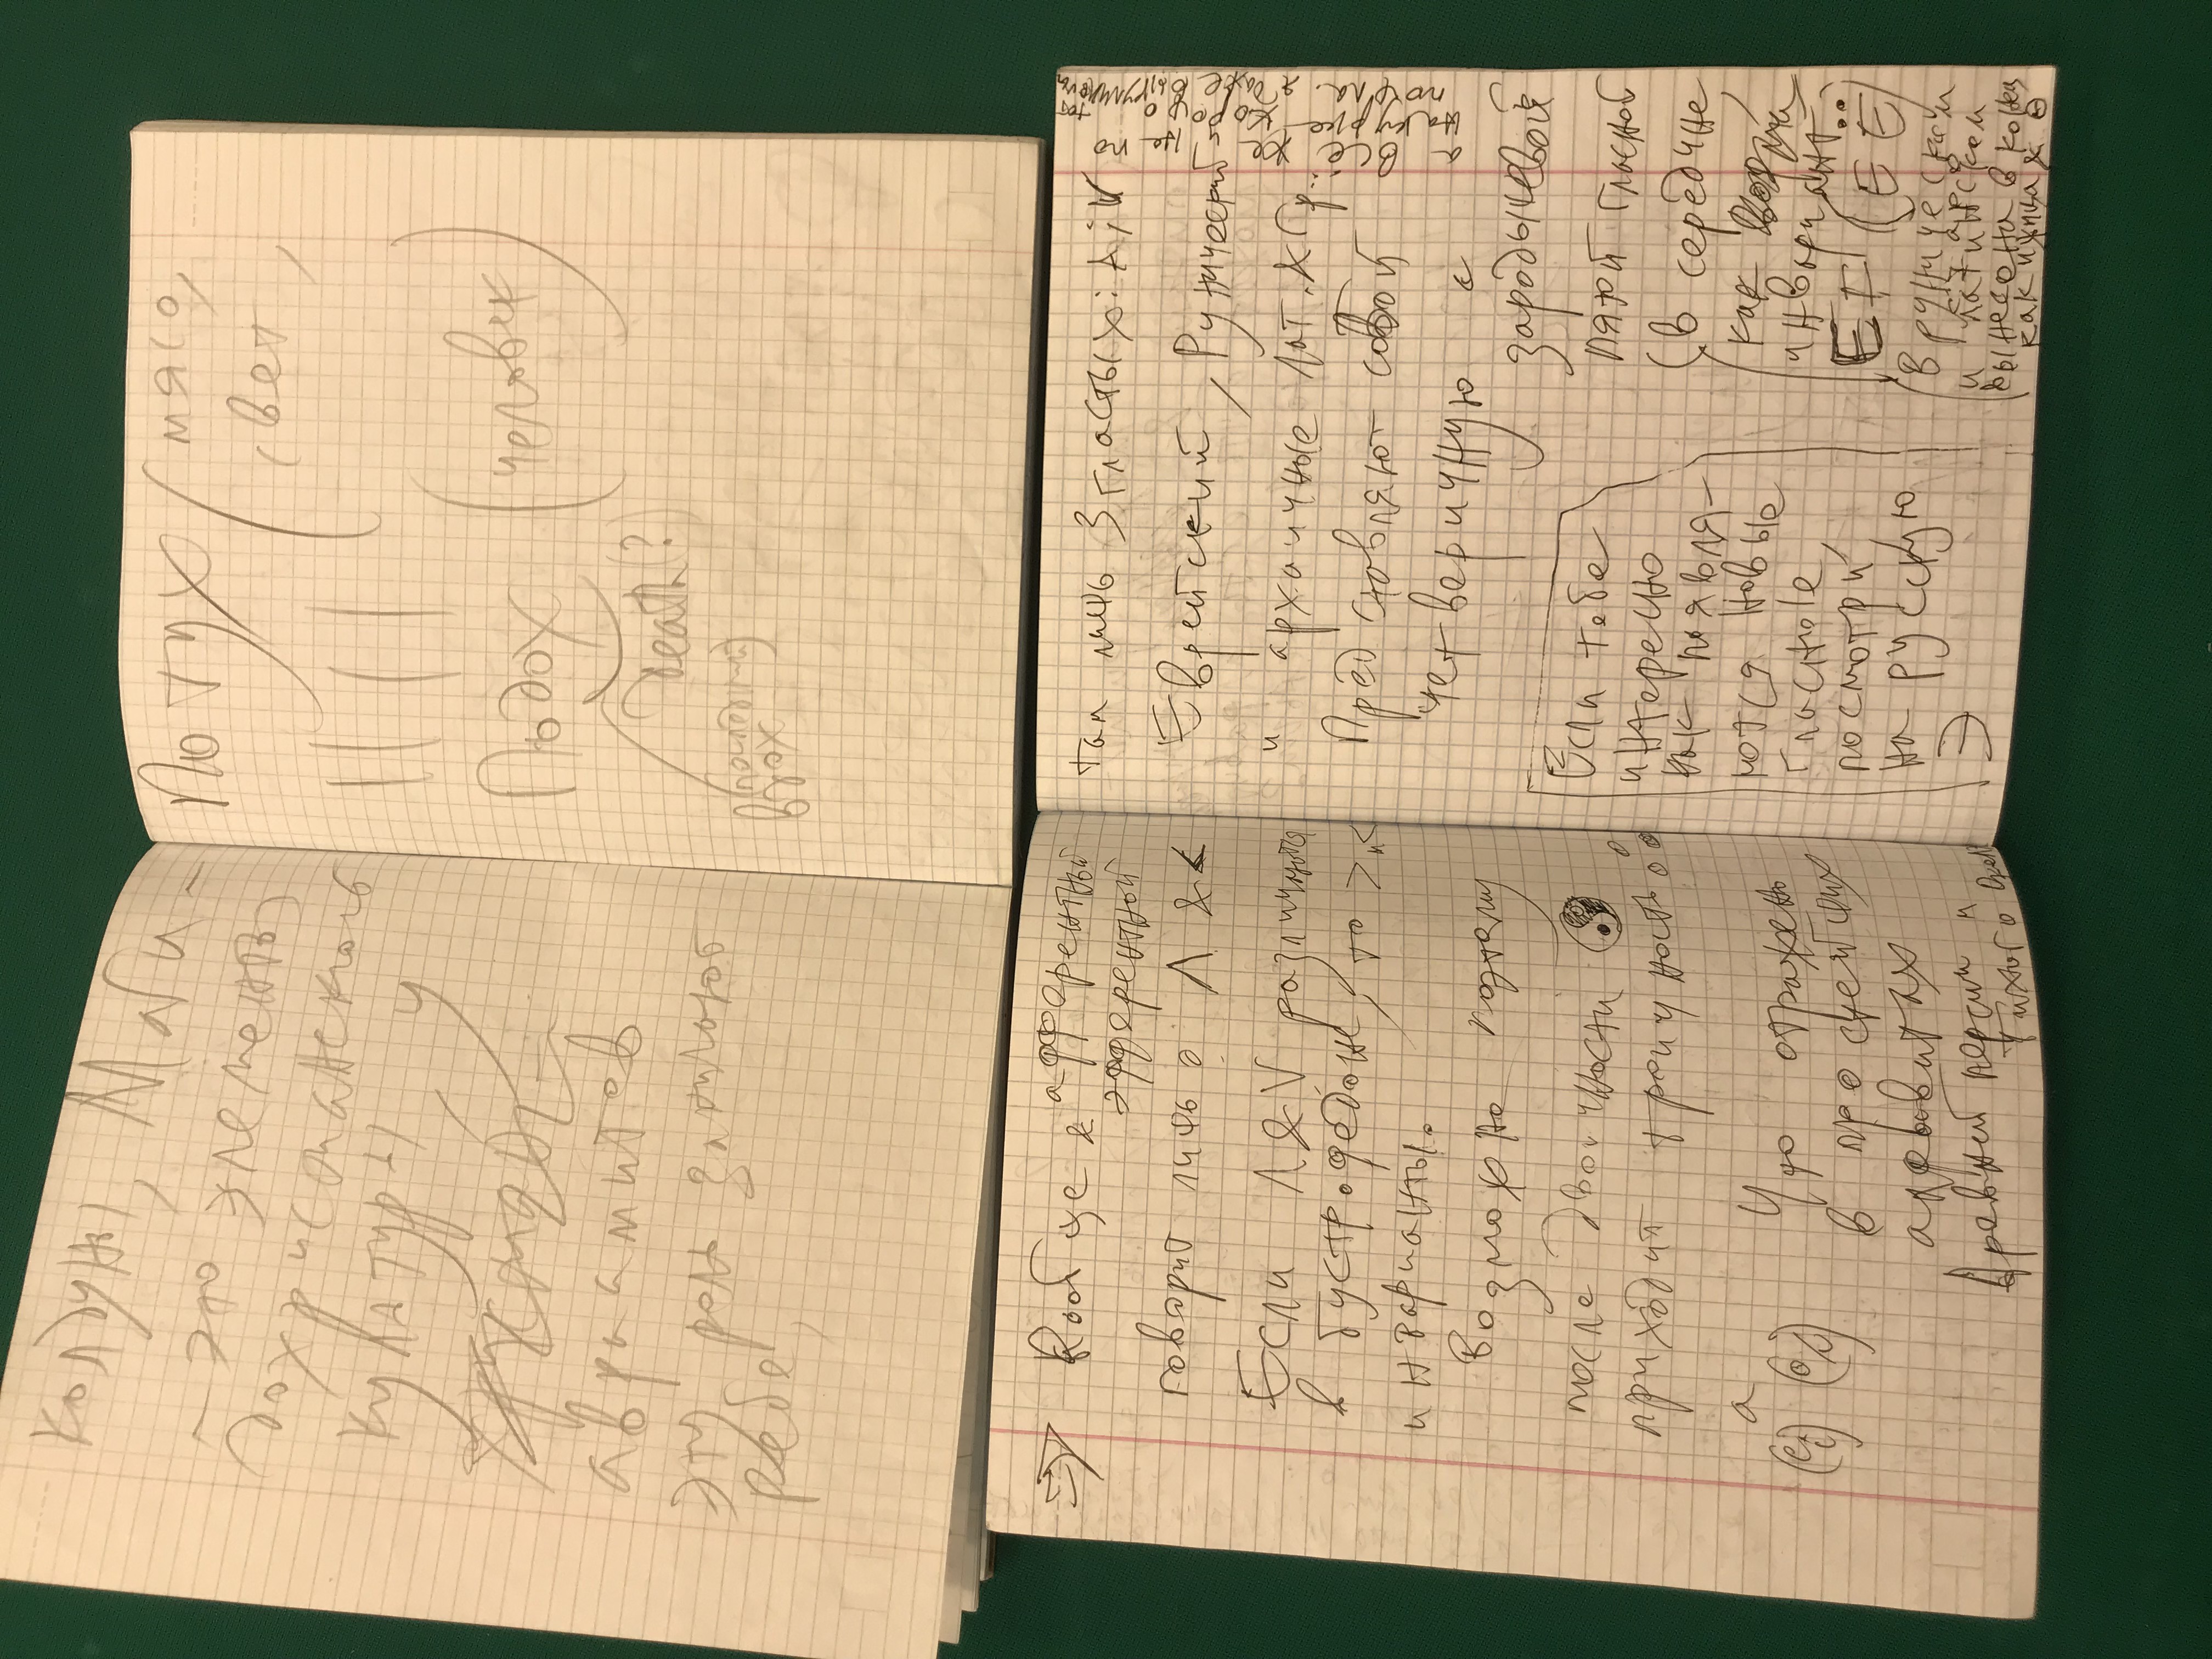 колдуны, маги –
– это элементы
дохристианской
культуры, у
авраамитов
эту роль занимают
ребе,
Потух (мясо,
свет,
Подох (человек)
death (?)
вдох
Вообще & афферентный
эфферентный
говорит лишь о Λ & <
Если Λ & V различны
в бустрофедоне, то > и <
инварианты.
Возможно поэтому
после двоичности ☯
приходит троичность
а
Что отражено
в простейших
алфавитах
Древней персии и
Тихого Океа
там лишь 3 гласных: A i V
Еврейский, Рунический
и архаичные лат. & Гр..
Представляют собой
четверичную с
зародышевой
пятой гласной
(в середине
как
инвариант..
E I (E Ë)
(В руническом
и латинском
вынесена в конец
как ижица & Θ
Если тебе
интересно
как появля-
ются новые
гласные,
посмотри
на русскую
Э
а все же у не по
накурке хорошо
пошла. я даже выгуливаюсь